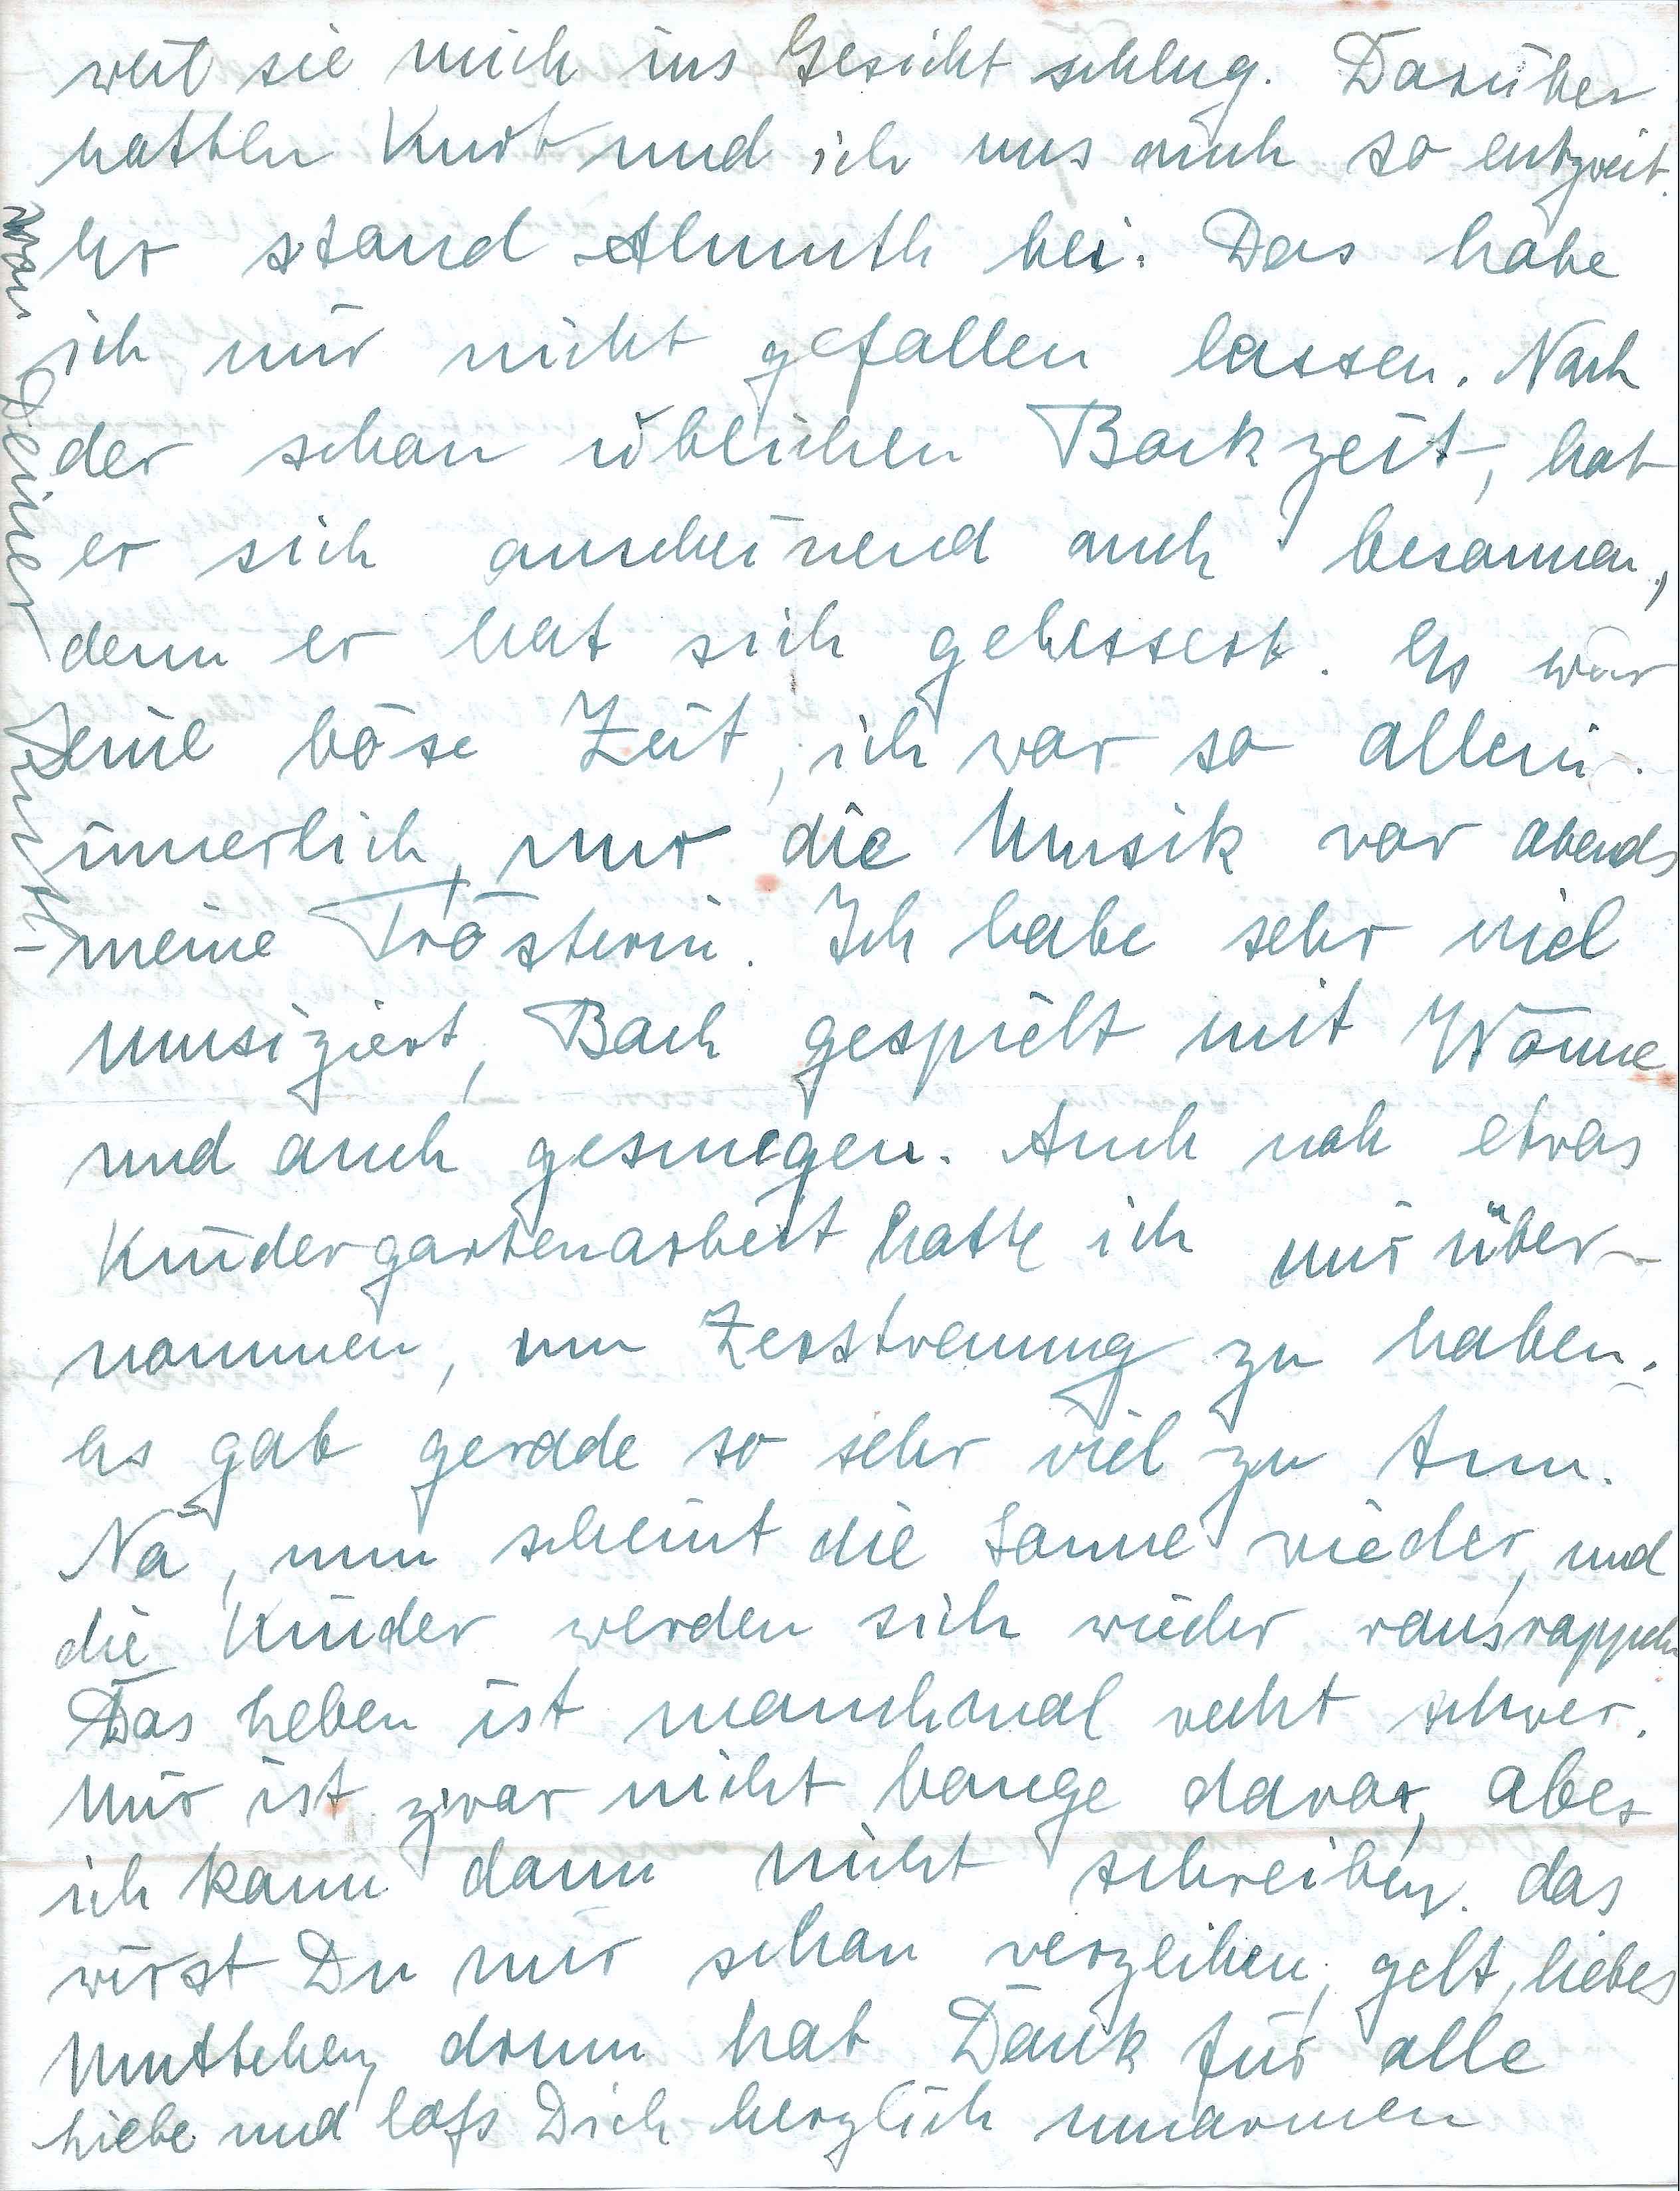 weil sie mich ins Gesicht schlug. Darüber
hatten Kurt und ich uns auch so entzweit.
Er stand Almuth bei. Das habe
ich mir nicht gefallen lassen. Nach
der schon üblichen Bockzeit, hat
er sich anscheinend auch besonnen,
denn er hat sich gebessert. Es war
eine böse Zeit, ich war so allein
innerlich, nur die Musik war abends
meine Trösterin. Ich habe sehr viel
musiziert, Bach gespielt mit Wonne
und auch gesungen. Auch noch etwas
Kindergartenarbeit hatte ich mir über-
nommen, um Zerstreuung zu haben.
Es gab gerade so sehr viel zu tun.
Na, nun scheint die Sonne wieder, und
die Kinder werden sich wieder rausrappeln
Das Leben ist manchmal recht schwer.
Mir ist zwar nicht bange davor, aber
ich kann dann nicht schreiben. das
wirst Du mir schon verzeihen, gelt, liebes
Muttchen, drum hab Dank für alle
Liebe und laß Dich herzlich umarmen
von Deiner